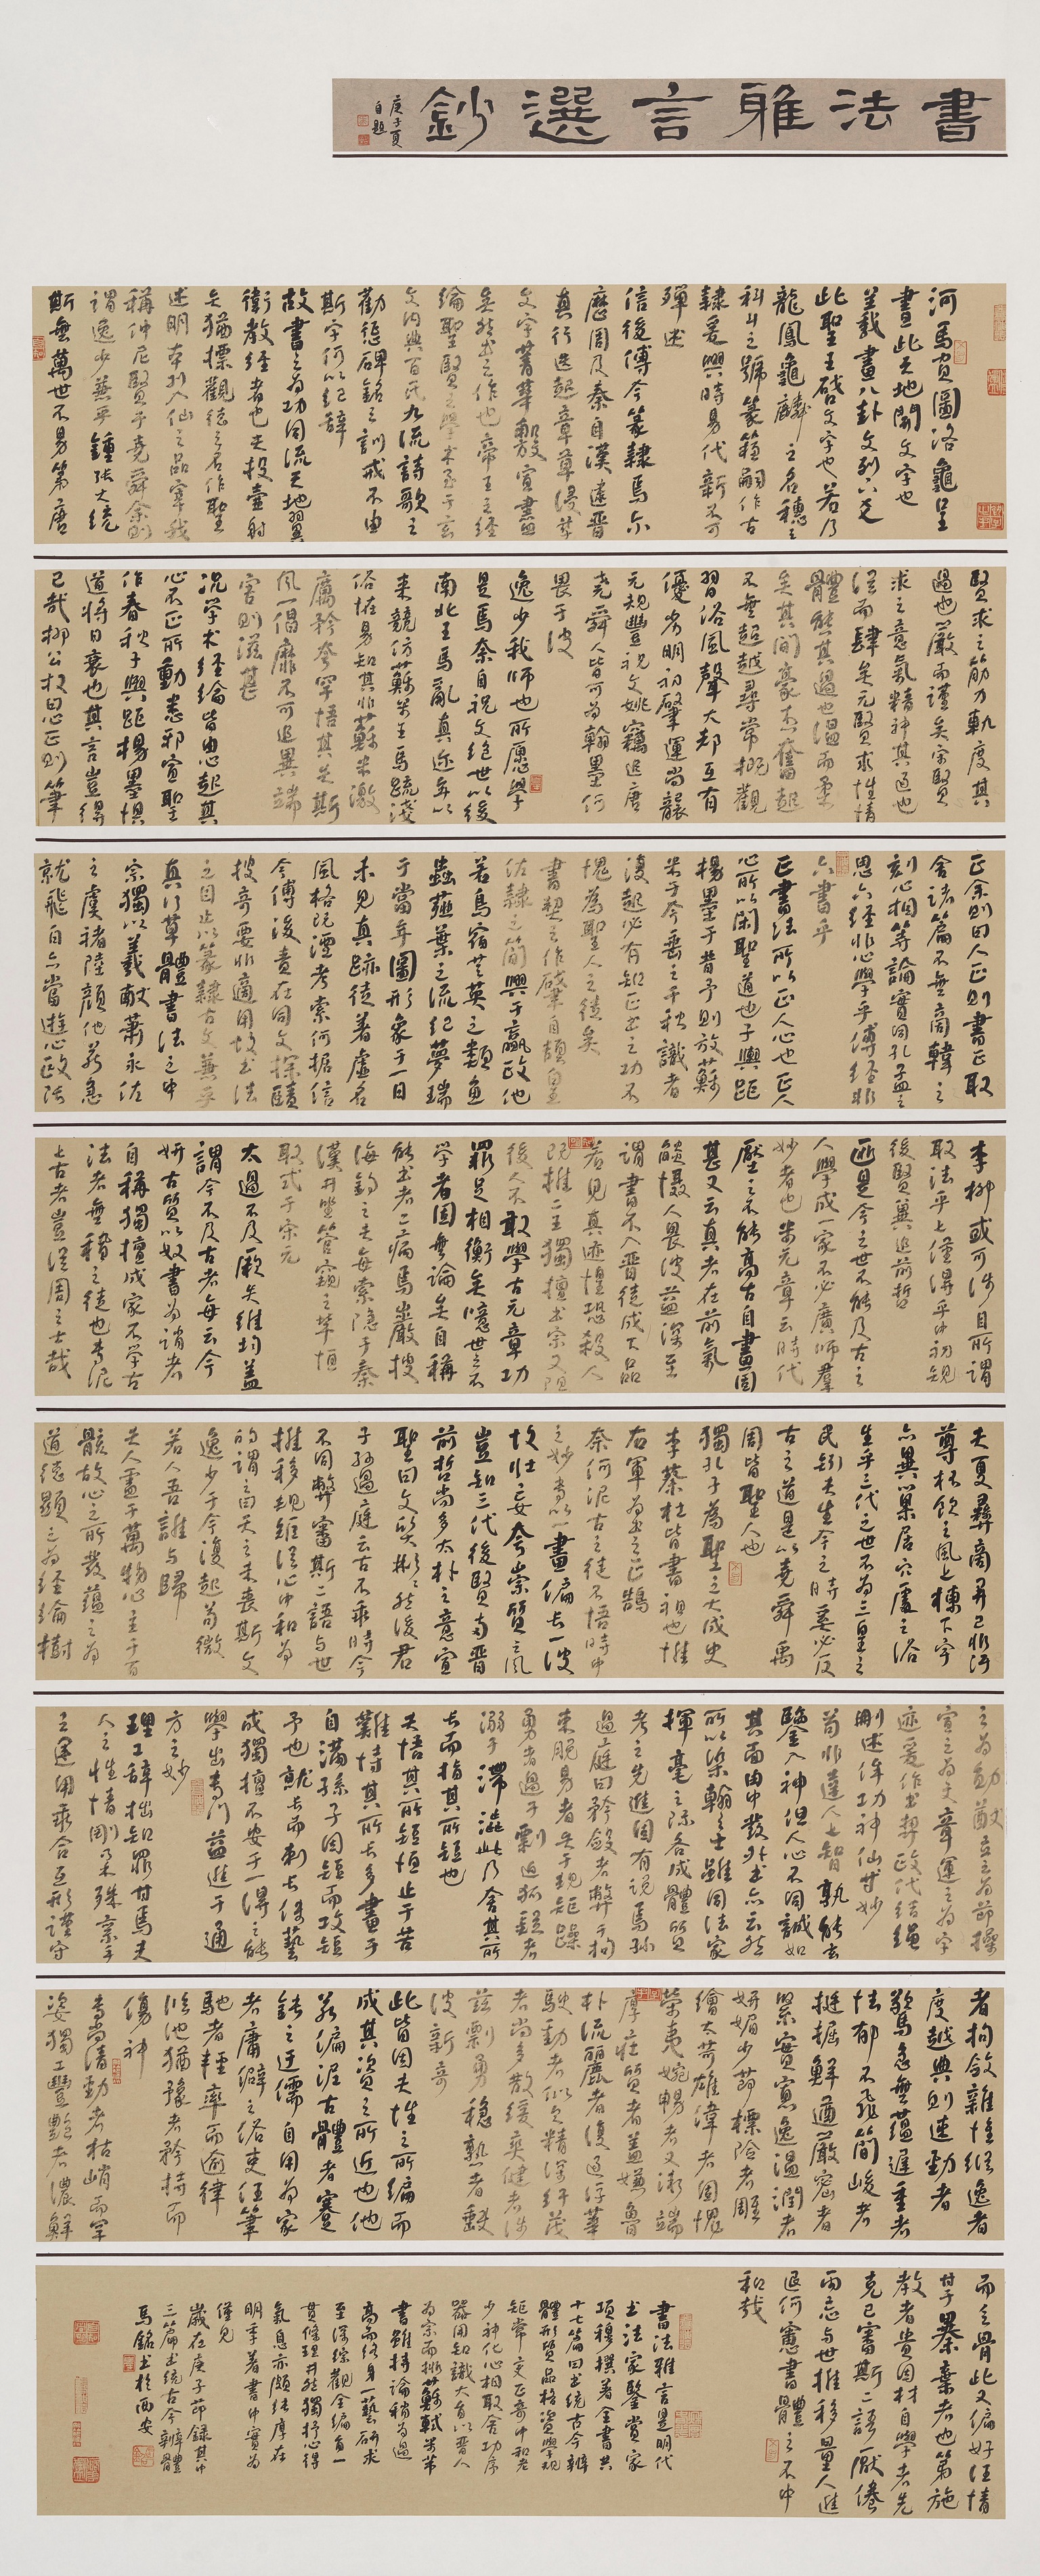 書法雅言選鈔
庚子夏
自題
河馬負圖洛龜呈
書此天地開文字也
羲畫八卦文列六爻
此聖王啓文字也若乃
龍鳳龜麟之名穗雲
科斗之號篆籀嗣作古
隸爰興時易代新不可
殫述
信後傳今篆隸焉尔
歷周及秦自漢逮晉
真行迭起章草浸孳
文字菁華敷宣盡
矣然書之作也帝王之經
綸聖賢之學术至于玄
文内典百氏九流詩歌之
勸懲碑銘之訓戒不由
斯字何以紀辭
故書之爲功同流天地翼
衛教經者也夫投壺射
矢猶標觀德之名作聖
述明本列入仙之品寧我
稱仲尼賢于堯舜余則
謂逸少兼乎鍾張大統
斯垂萬世不易第唐
賢求之筋力軌度其
過也嚴而謹矣宋賢
求之意氣精神其過也
縱而肆矣元賢求性情
體態其過也温而柔
矣其間豪杰奮起
不無超越尋常概觀
習俗風聲大都互有
優劣明初肇運尚襲
元規豐祝文姚竊追唐
堯舜人皆可爲翰墨何
畏于彼
逸少我師也所願學
是焉奈自祝文絕世以後
南北王馬亂真邇年以
來競仿蘇米王馬疏淺
俗怪易知其非蘇米激
厲矜夸罕悟其失斯
風一倡靡不可追異端
害則滋甚
況學术經綸皆由心起其
心不正所動悉邪宣聖
作春秋子輿距楊墨懼
道將日衰也其言豈得
已哉柳公权曰心正則筆
正余則曰人正則書正取
舍諸篇不無商韓之
刻心相等論實同孔孟之
思六經非心學乎傳經非
六書乎
正書法所以正人心也正人
心所以閑聖道也子輿距
楊墨于昔予則放蘇
米于今垂之千秋識者
復起必有知正書之功不
愧爲聖人之徒矣
書契之作肇自頡皇
佐隸之簡興于嬴政他
若鳥宿芝英之類魚
蟲薤葉之流紀夢瑞
于當年圖形象于一日
未見真跡徒著虛名
風格既湮考索何据信
今傳後責在同文探賾
搜奇要非適用故書法
之目止以篆隸古文兼乎
真行草體書法之中
宗獨以羲獻蕭永佐
之虞褚陸顏他若急
就飛白亦當游心歐張
李柳或可涉目所謂
取法乎上僅得乎中初規
後賢冀追前哲
匪是今之世不能及古之
人學成一家不必廣師羣
妙者也米元章云時代
壓之不能高古自畫固
甚又云真者在前氣
焰懾人畏彼益深至
謂書不入晉徒成下品
若見真迹惶恐殺人
既推二王獨擅書宗又阻
後人不敢學古元章功
罪足相衡矣噫世之不
學者固無論矣自稱
能書者二病焉嚴搜
海釣之夫每索隱于秦
漢井坐管窺之輩恒
取式于宋元
太過不及厥失維均蓋
謂今不及古者每云今
妍古質以奴書爲誚者
自稱獨擅成家不學古
法者無稽之徒也专泥
上古者豈從周之士哉
夫夏彝商鼎已非汙
尊杯飲之風上棟下宇
亦異巢居穴處之俗
生乎三代之世不爲三皇之
民矧夫生今之時奚必反
古之道是以堯舜禹
周皆聖人也
獨孔子爲聖之大成史
李蔡杜皆書祖也惟
右軍爲書之正鵠
奈何泥古之徒不悟時中
之妙专以一畫偏長一波
故壯妄夸崇質之風
豈知三代後賢两晉
前哲尚多太朴之意宣
聖曰文質彬彬然後君
子孫過庭云古不乖時今
不同弊審斯二語与世
推移規矩從心中和爲
的謂之曰天之未喪斯文
逸少于今復起苟微
若人吾誰与歸
夫人靈于萬物心主于百
骸故心之所發蘊之爲
道德顯之爲經綸樹
之爲勋猷立之爲節操
宣之爲文章運之爲字
迹爰作書契政代結繩
刪述侔功神仙等妙
苟非達人上智孰能玄
鑒入神但人心不同誠如
其面由中發外書亦云然
所以染翰之士雖同法家
揮毫之際各成體質
考之先進固有說焉孫
過庭曰矜斂者弊于拘
束脱易者失于規矩躁
勇者過于剽迫狐疑者
溺于滯澁此乃舍其所
長而指其所短也
夫悟其所短恒止于苦
難恃其所長多畫于
自滿孫子因短而攻短
予也就長而刺長使藝
成獨擅不安于一得之能
學出专門益進于通
方之妙
理工辭拙知罪甘焉夫
人之性情剛柔殊禀手
之運用乖合互形謹守
者拘斂雜怪縱逸者
度越典則速勁者
驚急無蘊遲重者
怯郁不飛簡峻者
挺掘鮮遒嚴密者
緊實寡逸温潤者
妍媚少節標險者雕
繪太苛雄偉者固愧
榮夷婉暢者又渐端
厚莊質者蓋嫌魯
朴流麗者復過浮華
駛動者似欠精深纤茂
者尚多散緩爽健者涉
兹剽勇穩熟者缺
彼新奇
此皆因夫性之所偏而
成其資之所近也他
若偏泥古體者蹇
鈍之迂儒自用爲家
者庸僻之俗吏任筆
馳者輕率而逾律
臨池猶豫者矜持而
傷神
专尚清勁者枯峭而罕
姿獨工豐艷者濃鮮
而乏骨此又偏好任情
甘于暴棄者也第施
教者貴因材自學者先
克己審斯二語厭倦
兩忘与世推移量人進
退何憂書體之不中
和哉
書法雅言是明代
書法家鑒賞家
項穆撰著全書共
十七篇曰書統古今辨
體形質品格資學規
矩常變正奇中和老
少神化心相取舍功序
器用知識大旨以晉人
爲宗而排蘇軾米芾
書雖持論稍爲過
高而終身一藝研求
至深綜觀全編自一
貫條理井然獨抒心得
氣息亦頗純厚在
明季著書中實爲
僅見
歲在庚子節録其中
三篇書統古今辨體
馬銘書於西安